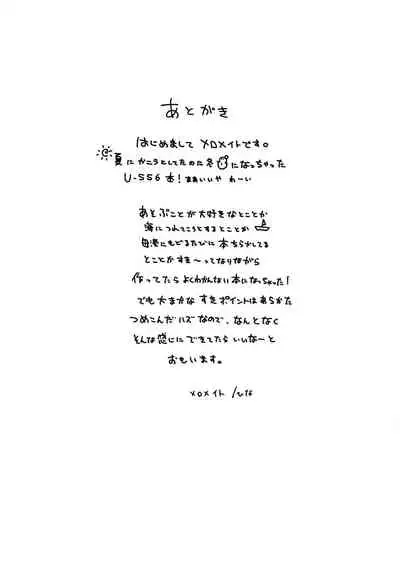 あとがき
はじめまして メロメイトです。
夏にかこうとしてたのに冬になっちゃった
U-556本!まあいいや わーい
あとぷことが大好きなとことか
海につれてこうとするとことか
母港にもどるたびに本ちらかしてる
とことかすき〜ってなりながら
作ってたらよくわかんない本になっちゃった!
でも大まかな すきポイントはあらかた
つめこんだハズなので、なんとなく
そんな感じに できてたら いいなーと
おもいます。
メロメイト /ひな